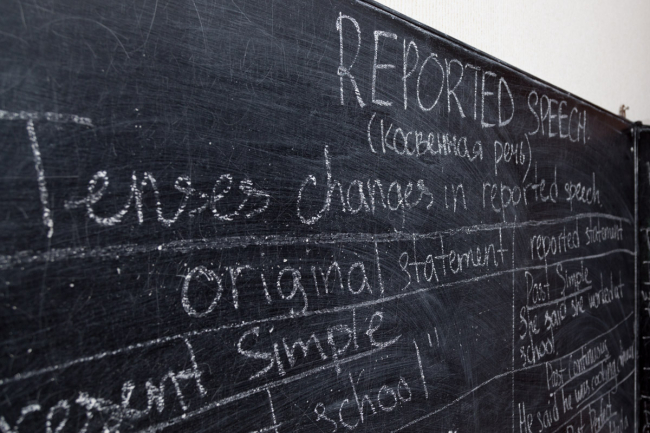 REPORTED SPEECH
(косвенная речь)
Tenses changes in reported speech
original statement reported statement
Present Simple Past Simple
school" She said she worked at
school
Past Continuous
He said he was
Past Perfect